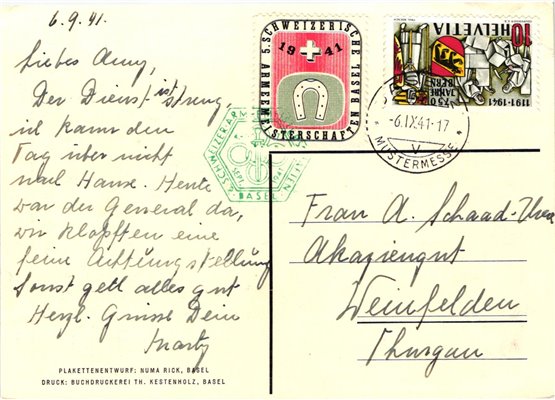 6.9.41.
Liebes Anny,
Der Dienst ist streng,
ich kann den
Tag über nicht
nach Hause. Heute
war der General da,
wir klopften eine
feine Achtungstellung
Sonst geht alles gut
Herzl. Grüsse Dein
PLAKETTENENTWURF: NUMA RICK, BASEL
DRUCK: BUCHDRUCKEREI TH. KESTENHOLZ, BASEL
5. SCHWEIZERISCHE
ARMEEMEISTERSCHAFTEN BASEL
1941
BASEL
SEPT. 1941
HELVETIA
10
1191-1941
750
JAHRE
BERN
-6.IX41-17
V
MUSTERMESSE
Frau A. Schaad-
Akaziengut
Weinfelden
Thurgau